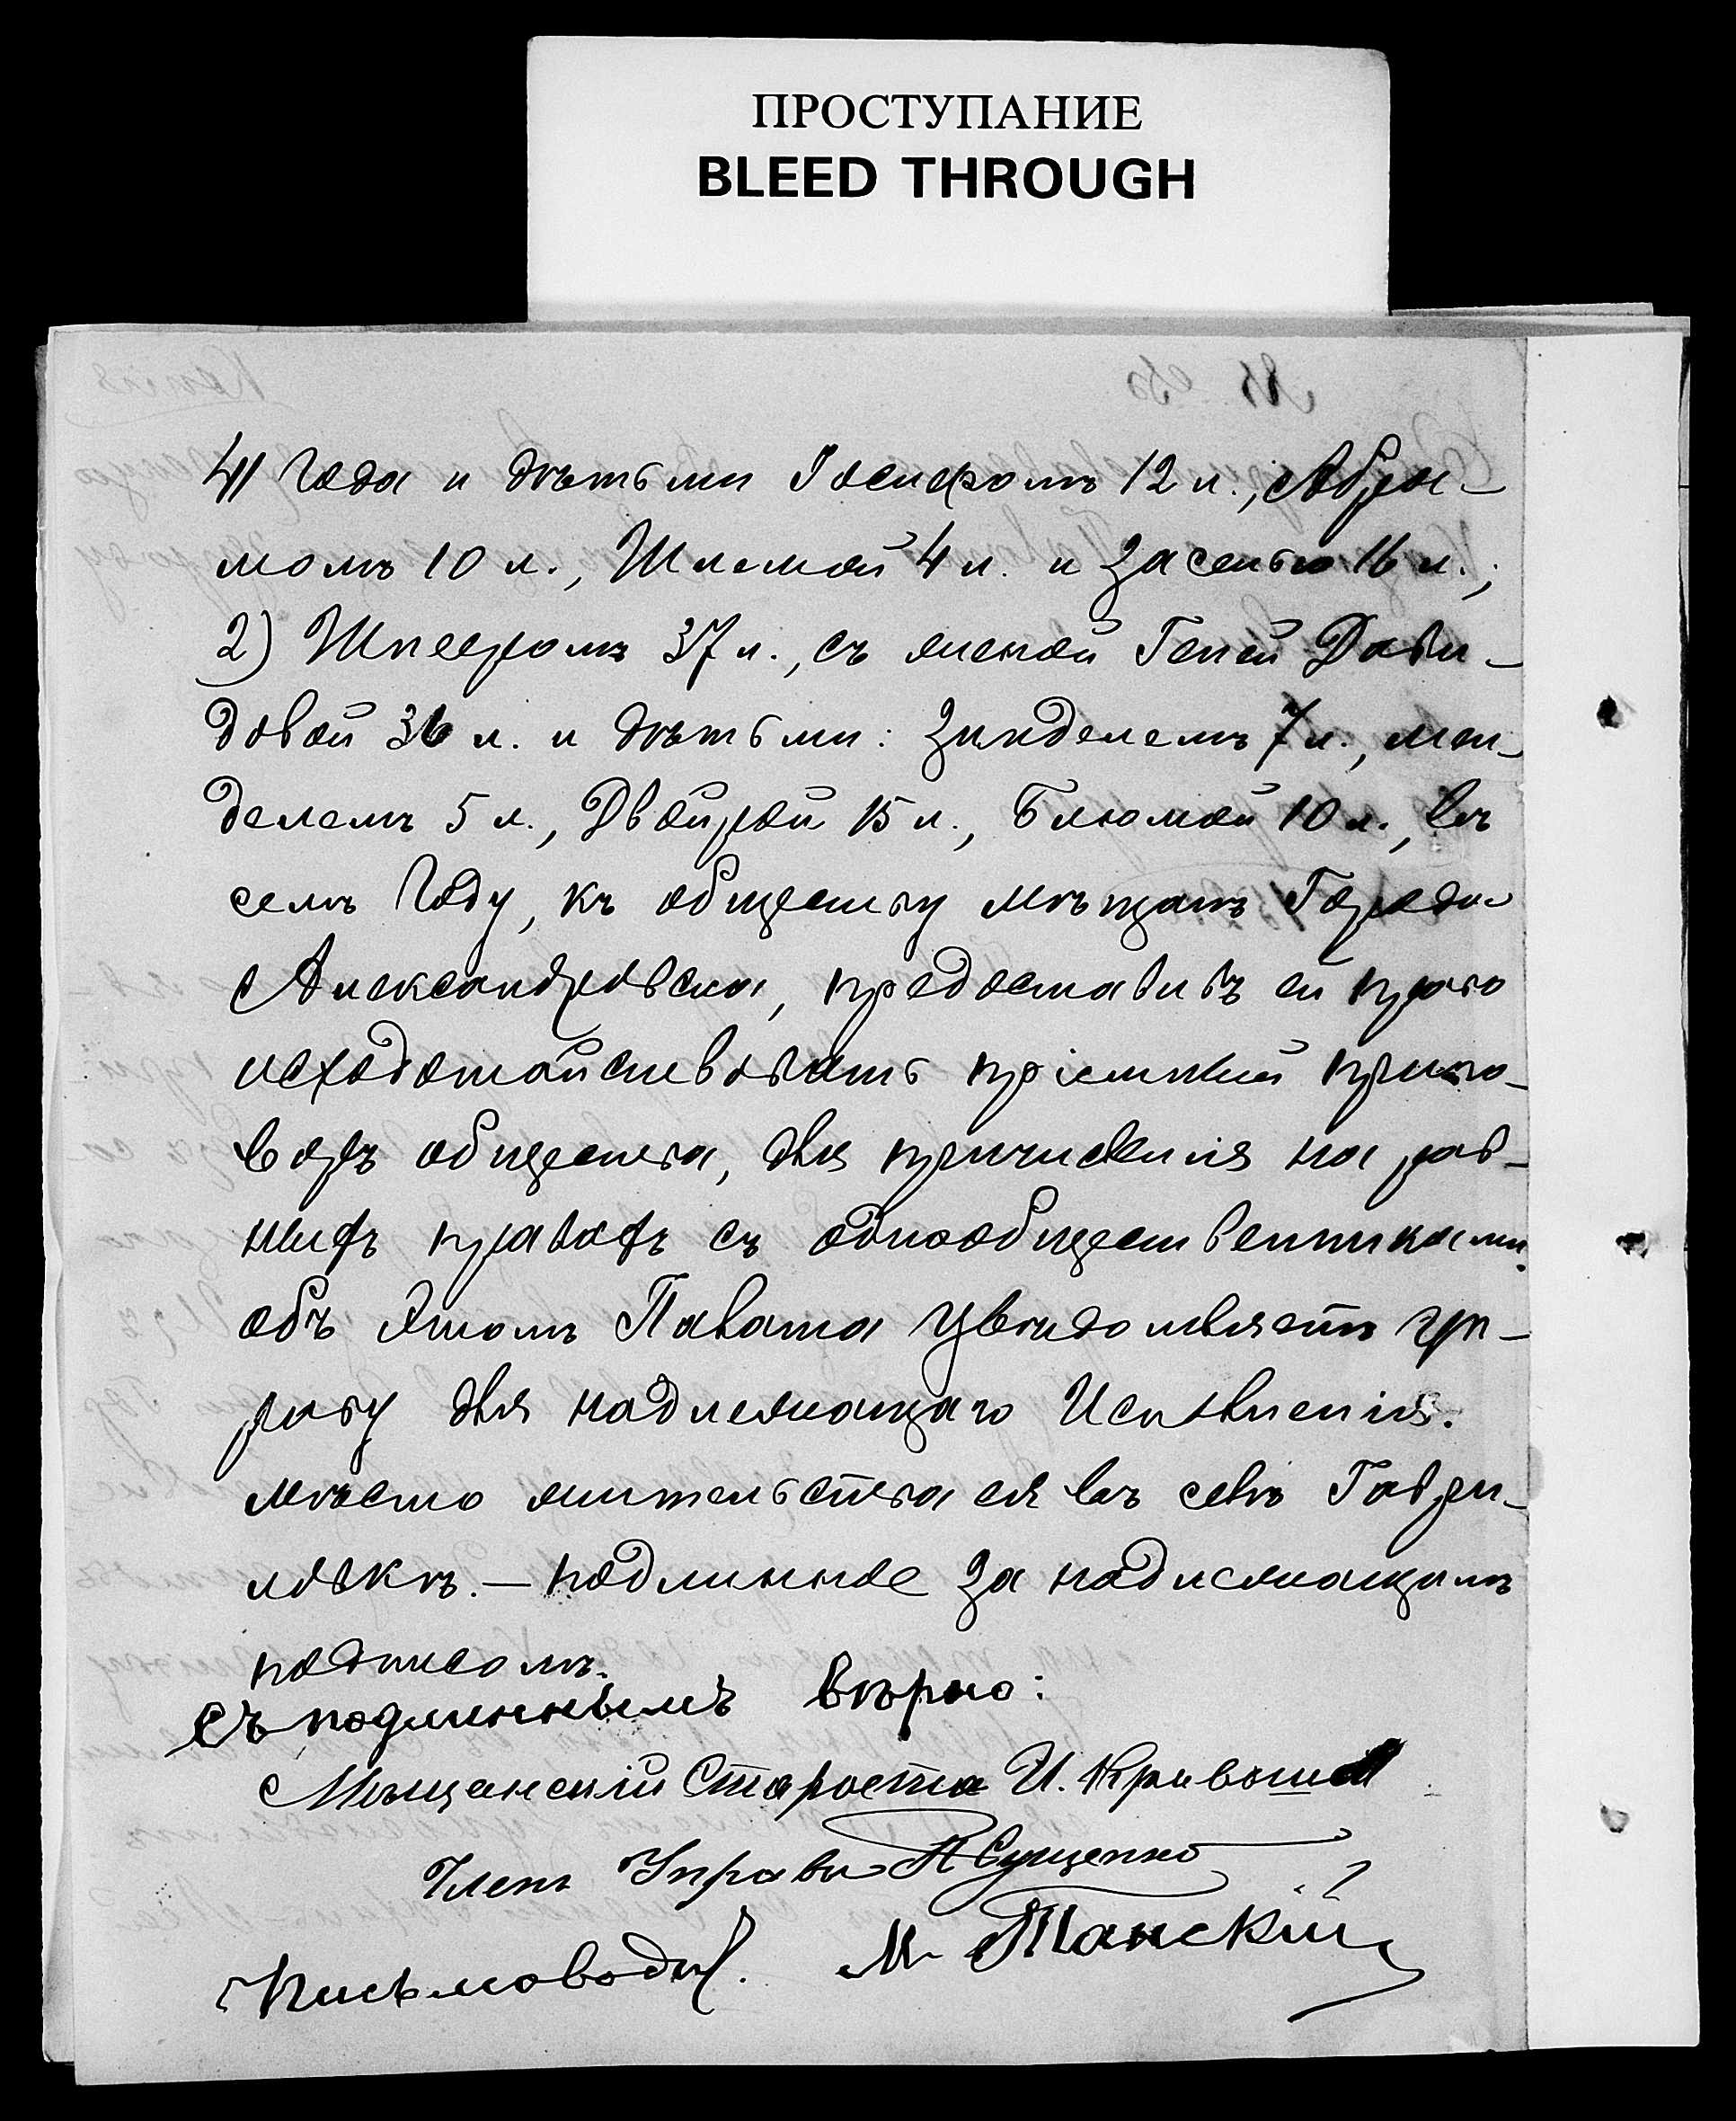 ПРОСТУПАНИЕ
BLEED THROUGH
41 года и дѣтьми Іосифомъ 12 л., Абра-
момъ 10 л., Шлемой 4 л. и Засепью 16 л.;
2) Шпееромъ 37 л., съ женой Геней Дави-
довой 36 л. и дѣтьми: Зинделемъ 7 л., Мен-
делемъ 5 л., Двойрой 15 л., Блюмой 10 л., въ
семъ году, къ обществу мѣщанъ города
Александровска, предоставивъ ей право
исходотайствовать пріемный приго-
воръ общества, для причисленія на рав-
ныхъ правахъ съ однообщественниками.
объ этомъ Палата увѣдомляетъ уп-
раву для надлежащаго Исполненія.
Мѣсто жительства ея въ селѣ Гаври-
ловкѣ. — подлинное за надлежащимъ
подписомъ.
Съ подлиннымъ вѣрно:
Мѣщанскій Староста И. Кривоше
Членъ Управы П Сущенко
Письмоводит. М Танскій